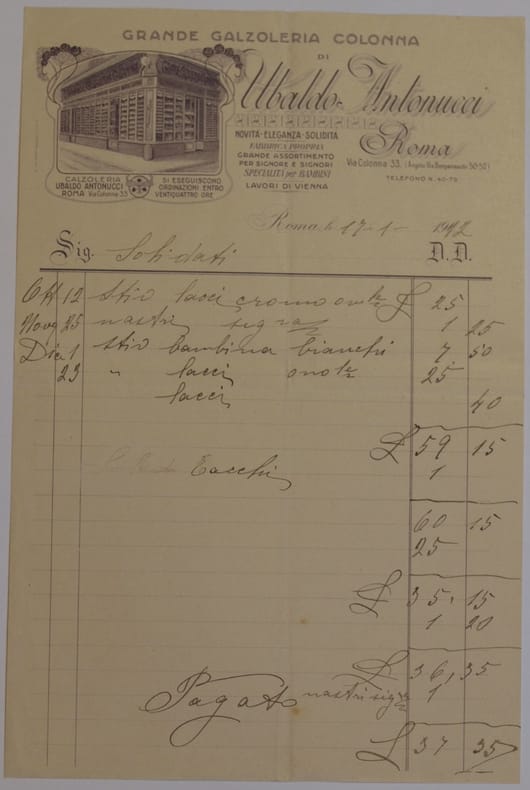 GRANDE CALZOLERIA COLONNA
DI
Ubaldo Antonucci
NOVITÀ-ELEGANZA-SOLIDITÀ
FABBRICA PROPRIA
GRANDE ASSORTIMENTO
PER SIGNORE E SIGNORI
SPECIALITÀ per BAMBINI
LAVORI DI VIENNA
Roma
Via Colonna 33. (Angolo Via Buonpensiere 50-52)
TELEFONO N. 40-79
CALZOLERIA
UBALDO ANTONUCCI
ROMA Via Colonna 33
SI ESEGUISCONO
ORDINAZIONI ENTRO
VENTIQUATTRO ORE
Roma, li 17-1- 1912
Sig. Solidati D.D.
Ott 12 stiv lacci cromo £ 25
Nov 25 nastri segrā 1 25
Dic 1 stiv bambina bianchi 7 50
23 " lacci 25
lacci 40
£ 59 15
Tacchi 1
60 15
25
£ 35, 15
1 20
£ 36, 35
nastri 1
Pagato
£ 37 35